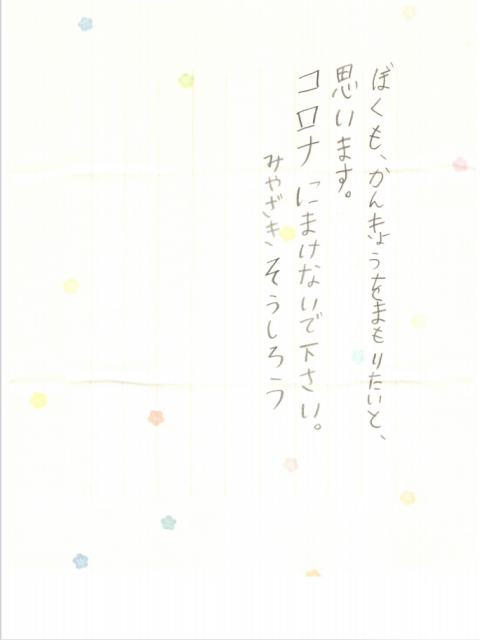 ぼくも、かんきょうをまもりたいと、
思います。
コロナにまけないで下さい。
みやざきそうしろう